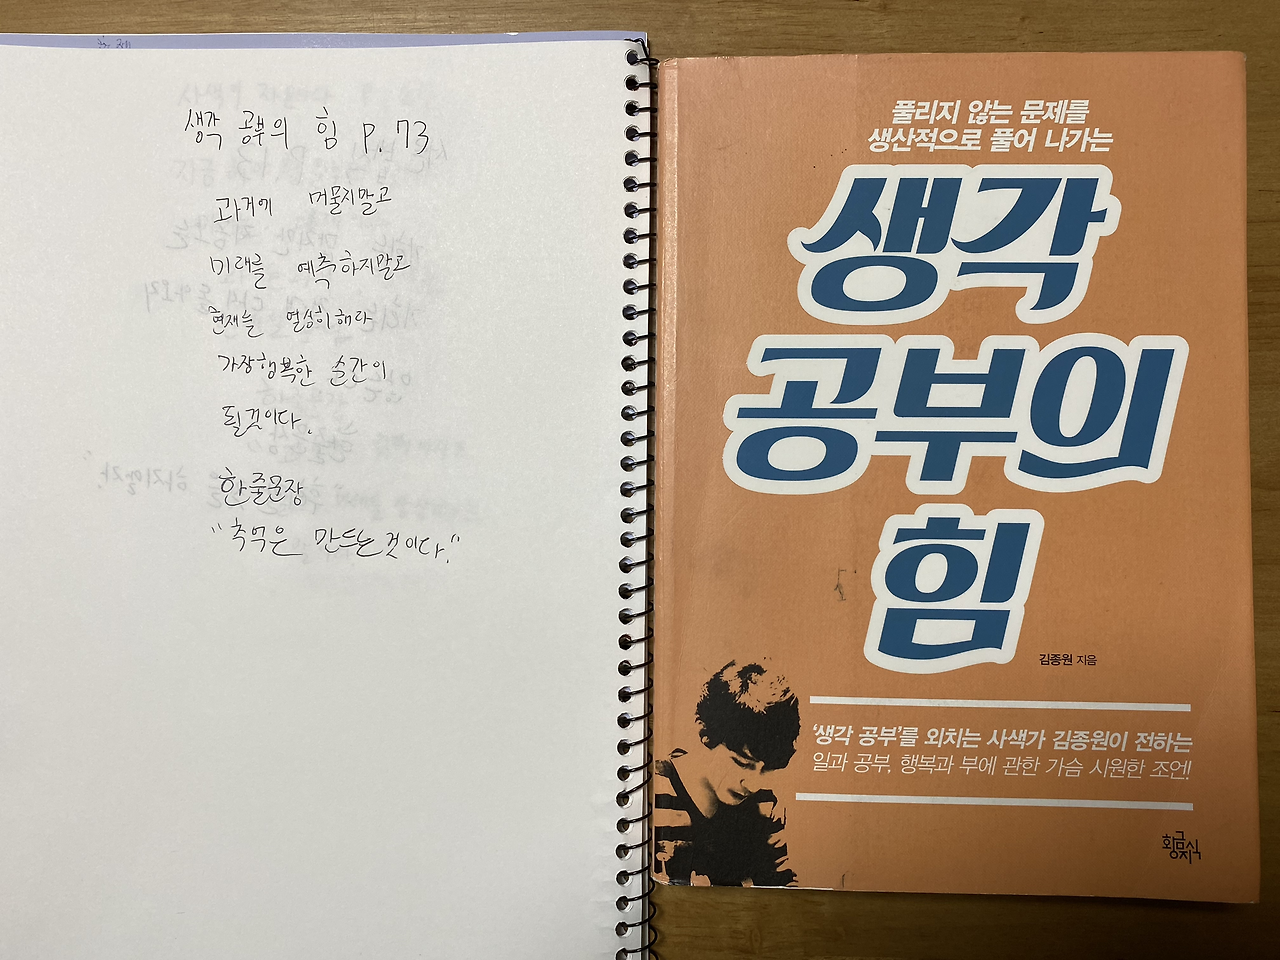 생각 공부의 힘 P. 73
과거에 머물지말고
미래를 예측하지말고
현재를 열심히해라
가장행복한 순간이
될것이다.
한줄문장
"추억은 만드는것이다."
풀리지 않는 문제를
생산적으로 풀어 나가는
생각
공부의
힘
김종원 지음
'생각 공부'를 외치는 사색가 김종원이 전하는
일과 공부, 행복과 부에 관한 가슴 시원한 조언!
황금지식